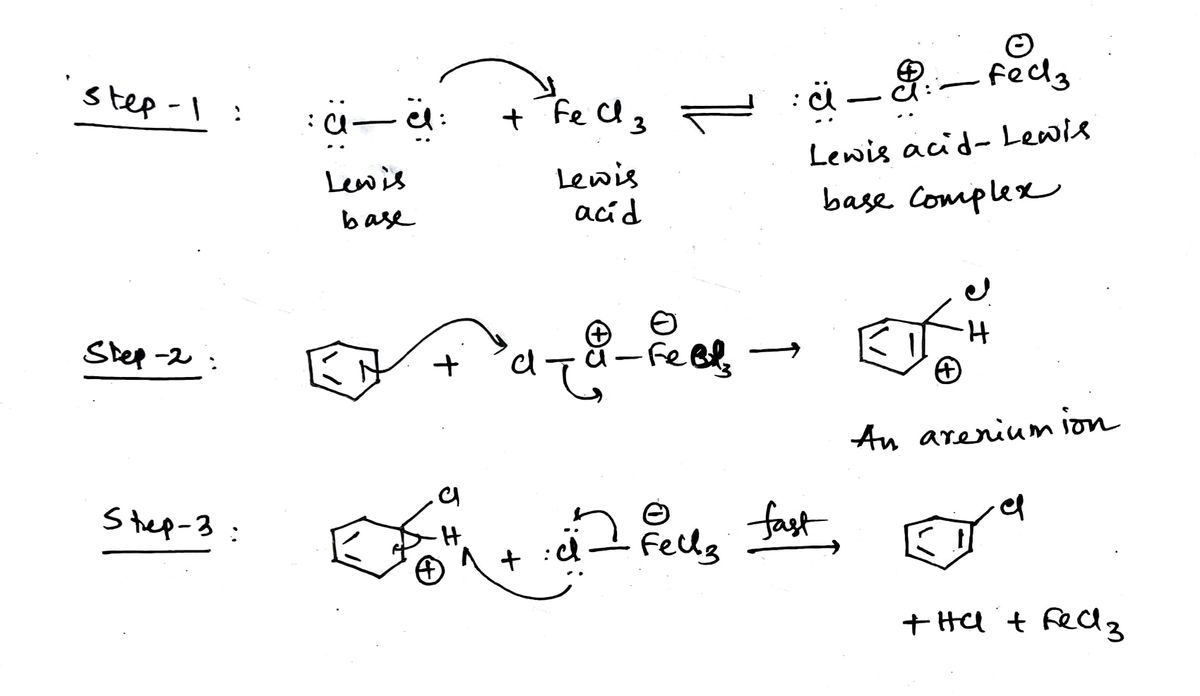 Step-1 : :Cl — Cl: + FeCl3 ⇌ :Cl — Cl⊕: — FeCl3⊖
Lewis base Lewis acid Lewis acid-Lewis base Complex
Step-2 : + Cl — Cl⊕ — FeCl3⊖ → Cl H ⊕
An arenium ion
Step-3 : Cl H ⊕ + :Cl — FeCl3⊖ fast → Cl
+ HCl + FeCl3